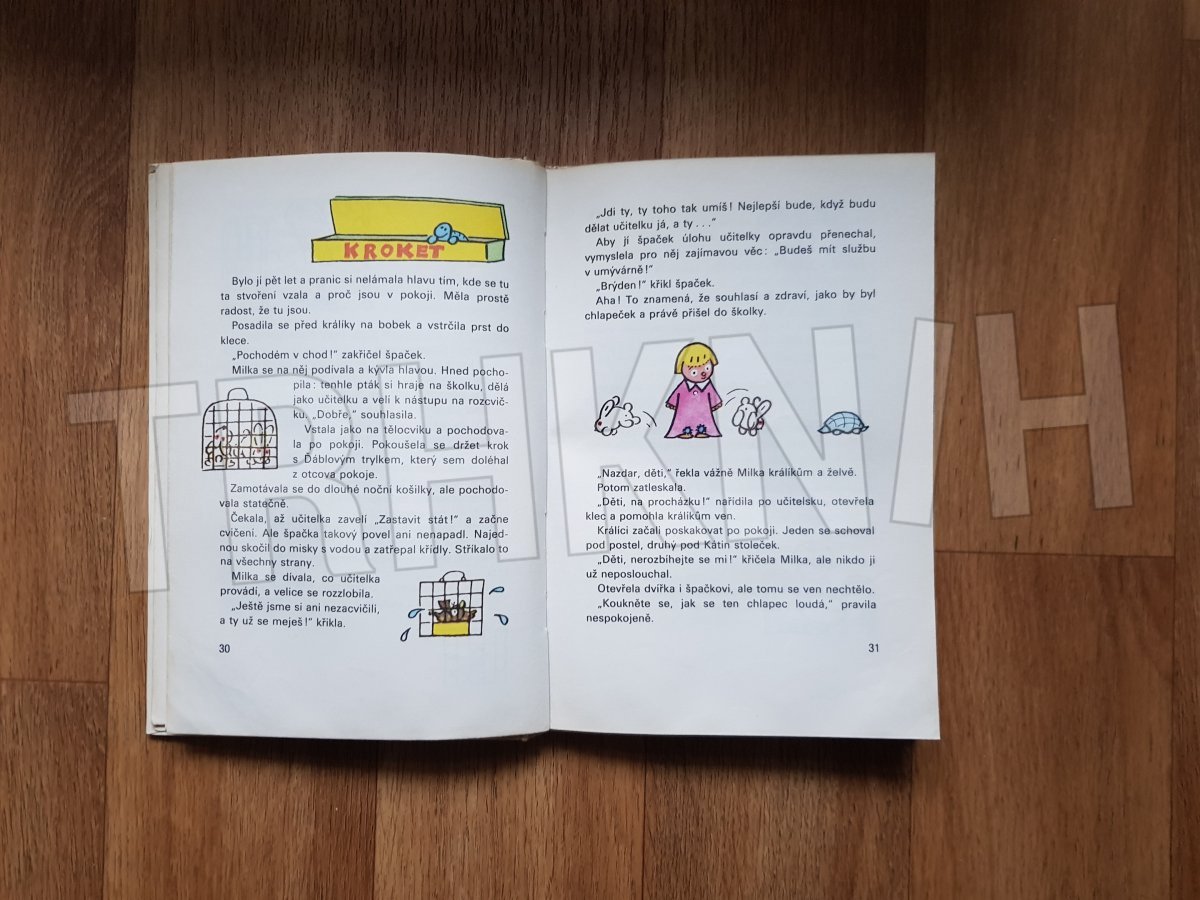 KROKET
Bylo jí pět let a pranic si nelámala hlavu tím, kde se tu
ta stvoření vzala a proč jsou v pokoji. Měla prostě
radost, že tu jsou.
Posadila se před králíky na bobek a vstrčila prst do
klece.
„Pochodém v chod!" zakřičel špaček.
Milka se na něj podívala a kývla hlavou. Hned pocho-
pila: tenhle pták si hraje na školku, dělá
jako učitelku a velí k nástupu na rozcvič-
ku. „Dobře," souhlasila.
Vstala jako na tělocviku a pochodova-
la po pokoji. Pokoušela se držet krok
s Ďáblovým trylkem, který sem doléhal
z otcova pokoje.
Zamotávala se do dlouhé noční košilky, ale pochodo-
vala statečně.
Čekala, až učitelka zavelí „Zastavit stát!" a začne
cvičení. Ale špačka takový povel ani nenapadl. Najed-
nou skočil do misky s vodou a zatřepal křídly. Stříkalo to
na všechny strany.
Milka se dívala, co učitelka
provádí, a velice se rozzlobila.
„Ještě jsme si ani nezacvičili,
a ty už se meješ!" křikla.
30
„Jdi ty, ty toho tak umíš! Nejlepší bude, když budu
dělat učitelku já, a ty . . ."
Aby jí špaček úlohu učitelky opravdu přenechal,
vymyslela pro něj zajímavou věc: „Budeš mít službu
v umývárně!"
„Brýden!" křikl špaček.
Aha! To znamená, že souhlasí a zdraví, jako by byl
chlapeček a právě přišel do školky.
„Nazdar, děti," řekla vážně Milka králíkům a želvě.
Potom zatleskala.
„Děti, na procházku!" nařídila po učitelsku, otevřela
klec a pomohla králíkům ven.
Králíci začali poskakovat po pokoji. Jeden se schoval
pod postel, druhý pod Kátin stoleček.
„Děti, nerozbíhejte se mi!" křičela Milka, ale nikdo ji
už neposlouchal.
Otevřela dvířka i špačkovi, ale tomu se ven nechtělo.
„Koukněte se, jak se ten chlapec loudá," pravila
nespokojeně.
31
TRHKNIH